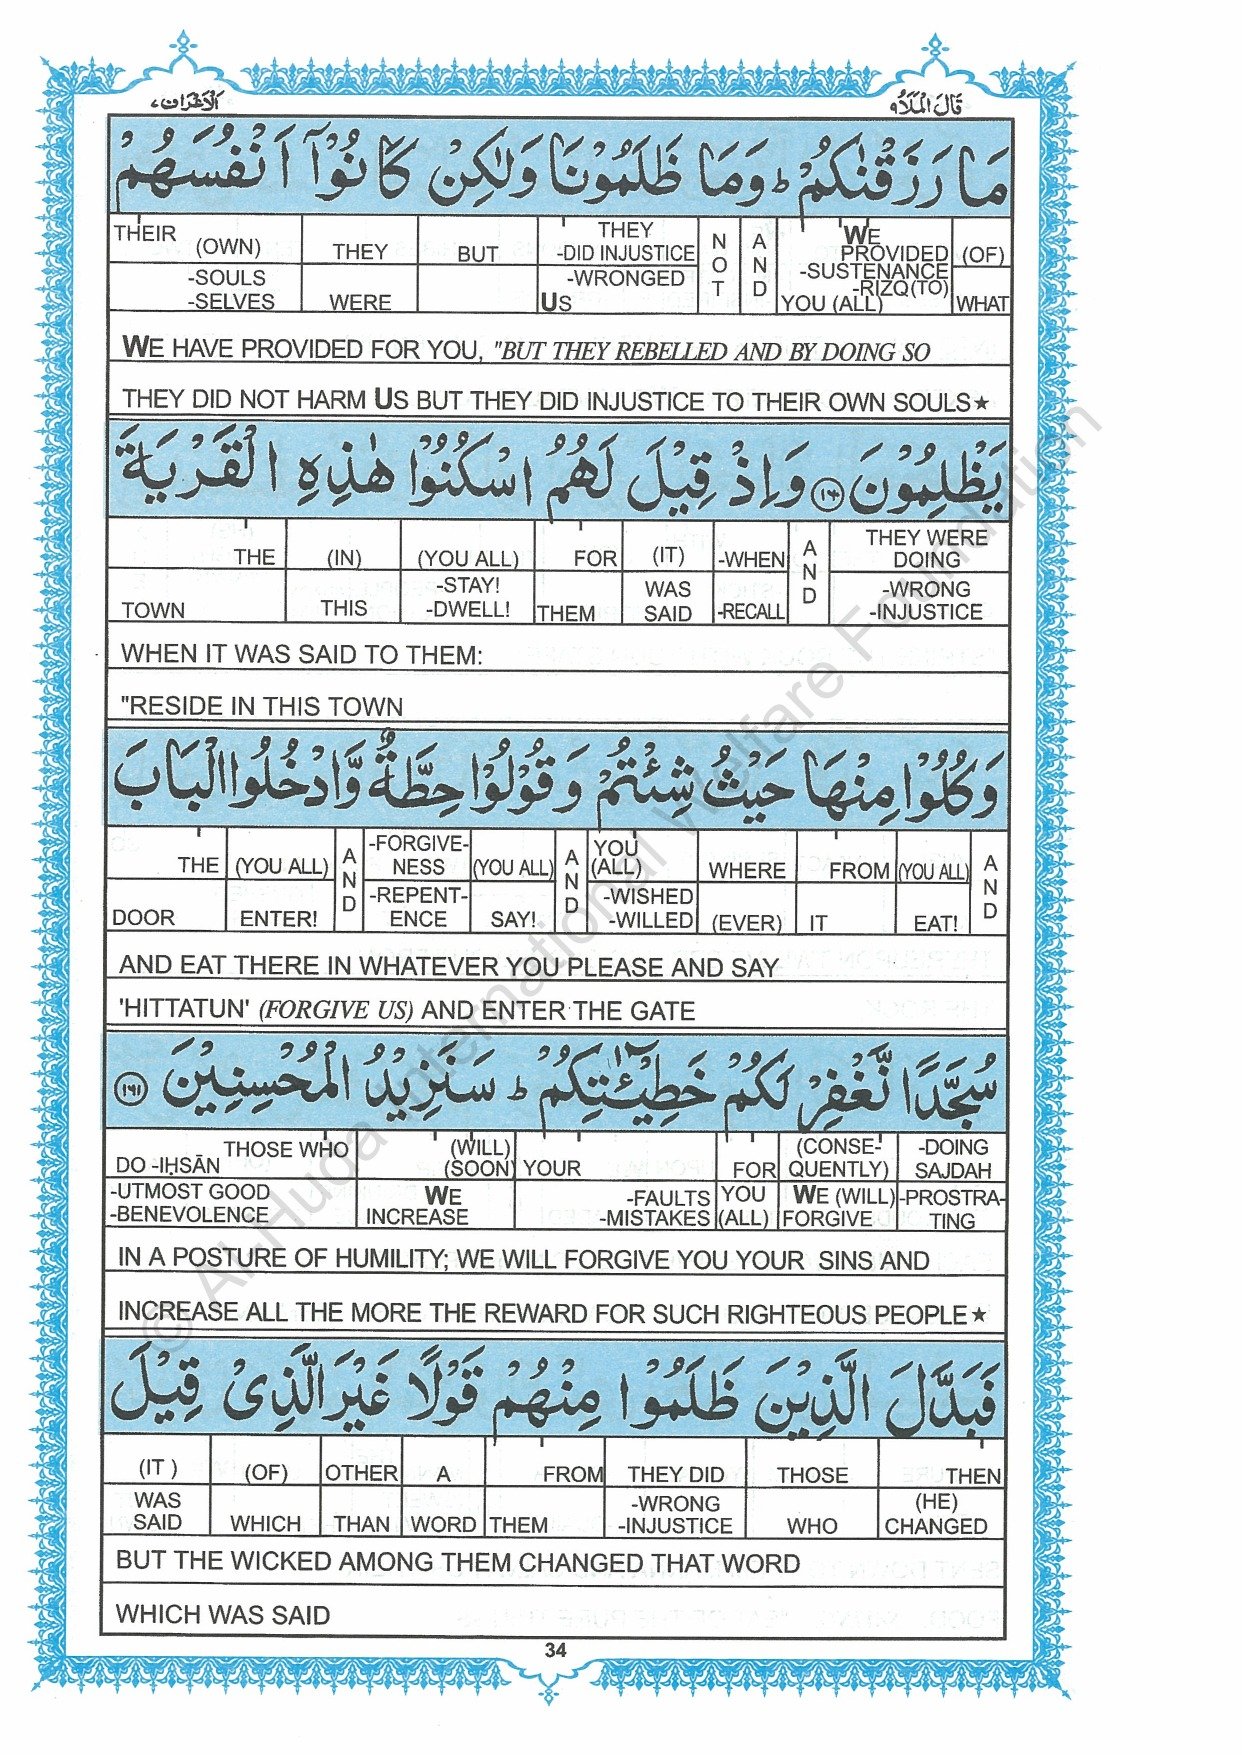 الاعراف ٧ قال الملأ ٩
مَا رَزَقْنٰكُمْ ؕ وَمَا ظَلَمُوْنَا وَلٰكِنْ كَانُوْۤا اَنْفُسَهُمْ
THEIR (OWN) THEY BUT THEY -DID INJUSTICE NOT AND WE PROVIDED (OF)
-SOULS -SELVES WERE -WRONGED US -SUSTENANCE -RIZQ(TO) YOU (ALL) WHAT
WE HAVE PROVIDED FOR YOU, "BUT THEY REBELLED AND BY DOING SO
THEY DID NOT HARM US BUT THEY DID INJUSTICE TO THEIR OWN SOULS★
يَظْلِمُوْنَ ۝١٦٠ وَاِذْ قِيْلَ لَهُمُ اسْكُنُوْا هٰذِهِ الْقَرْيَةَ
THE (IN) (YOU ALL) FOR (IT) -WHEN AND THEY WERE DOING
TOWN THIS -STAY! -DWELL! THEM WAS SAID -RECALL -WRONG -INJUSTICE
WHEN IT WAS SAID TO THEM:
"RESIDE IN THIS TOWN
وَكُلُوْا مِنْهَا حَيْثُ شِئْتُمْ وَقُوْلُوْا حِطَّةٌ وَّادْخُلُوا الْبَابَ
THE (YOU ALL) AND -FORGIVE-NESS (YOU ALL) AND YOU (ALL) WHERE FROM (YOU ALL) AND
DOOR ENTER! -REPENT-ENCE SAY! -WISHED -WILLED (EVER) IT EAT!
AND EAT THERE IN WHATEVER YOU PLEASE AND SAY
'HITTATUN' (FORGIVE US) AND ENTER THE GATE
سُجَّدًا نَّغْفِرْ لَكُمْ خَطِيْٓـٰٔتِكُمْ ؕ سَنَزِيْدُ الْمُحْسِنِيْنَ ۝١٦١
THOSE WHO DO -IḤSĀN (WILL) (SOON) YOUR FOR (CONSE-QUENTLY) -DOING SAJDAH
-UTMOST GOOD -BENEVOLENCE WE INCREASE -FAULTS -MISTAKES YOU (ALL) WE (WILL) FORGIVE -PROSTRA-TING
IN A POSTURE OF HUMILITY; WE WILL FORGIVE YOU YOUR SINS AND
INCREASE ALL THE MORE THE REWARD FOR SUCH RIGHTEOUS PEOPLE★
فَبَدَّلَ الَّذِيْنَ ظَلَمُوْا مِنْهُمْ قَوْلًا غَيْرَ الَّذِيْ قِيْلَ
(IT ) (OF) OTHER A FROM THEY DID THOSE THEN
WAS SAID WHICH THAN WORD THEM -WRONG -INJUSTICE WHO (HE) CHANGED
BUT THE WICKED AMONG THEM CHANGED THAT WORD
WHICH WAS SAID
34
© Al-Huda International Welfare Foundation